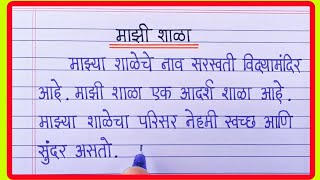 माझी शाळा
माझ्या शाळेचे नाव सरस्वती विद्यामंदिर
आहे. माझी शाळा एक आदर्श शाळा आहे.
माझ्या शाळेचा परिसर नेहमी स्वच्छ आणि
सुंदर असतो.